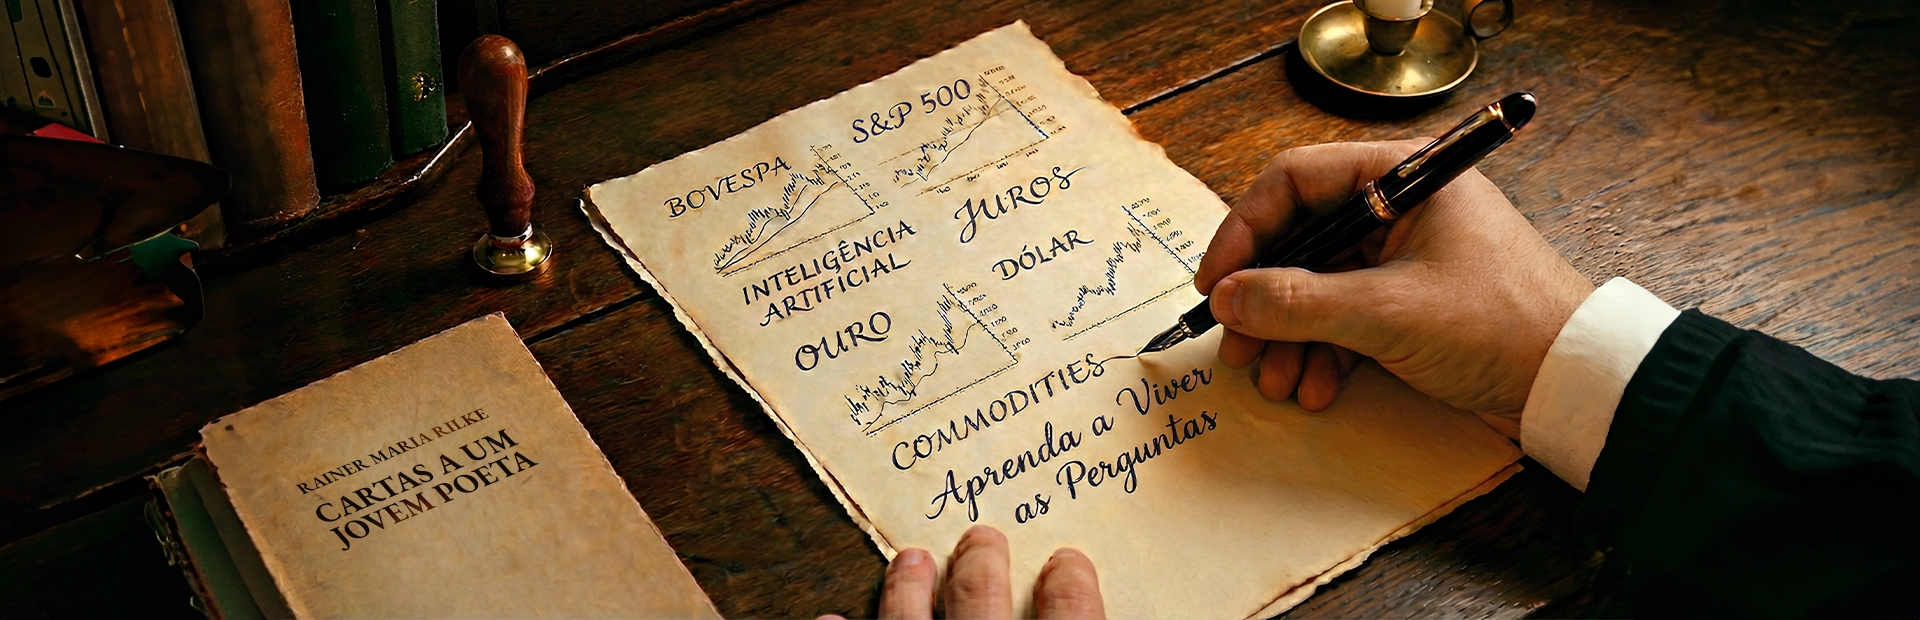 BOVESPA
S&P 500
INTELIGÊNCIA
ARTIFICIAL
JUROS
OURO
DÓLAR
COMMODITIES
Aprenda a Viver
as Perguntas
RAINER MARIA RILKE
CARTAS A UM
JOVEM POETA